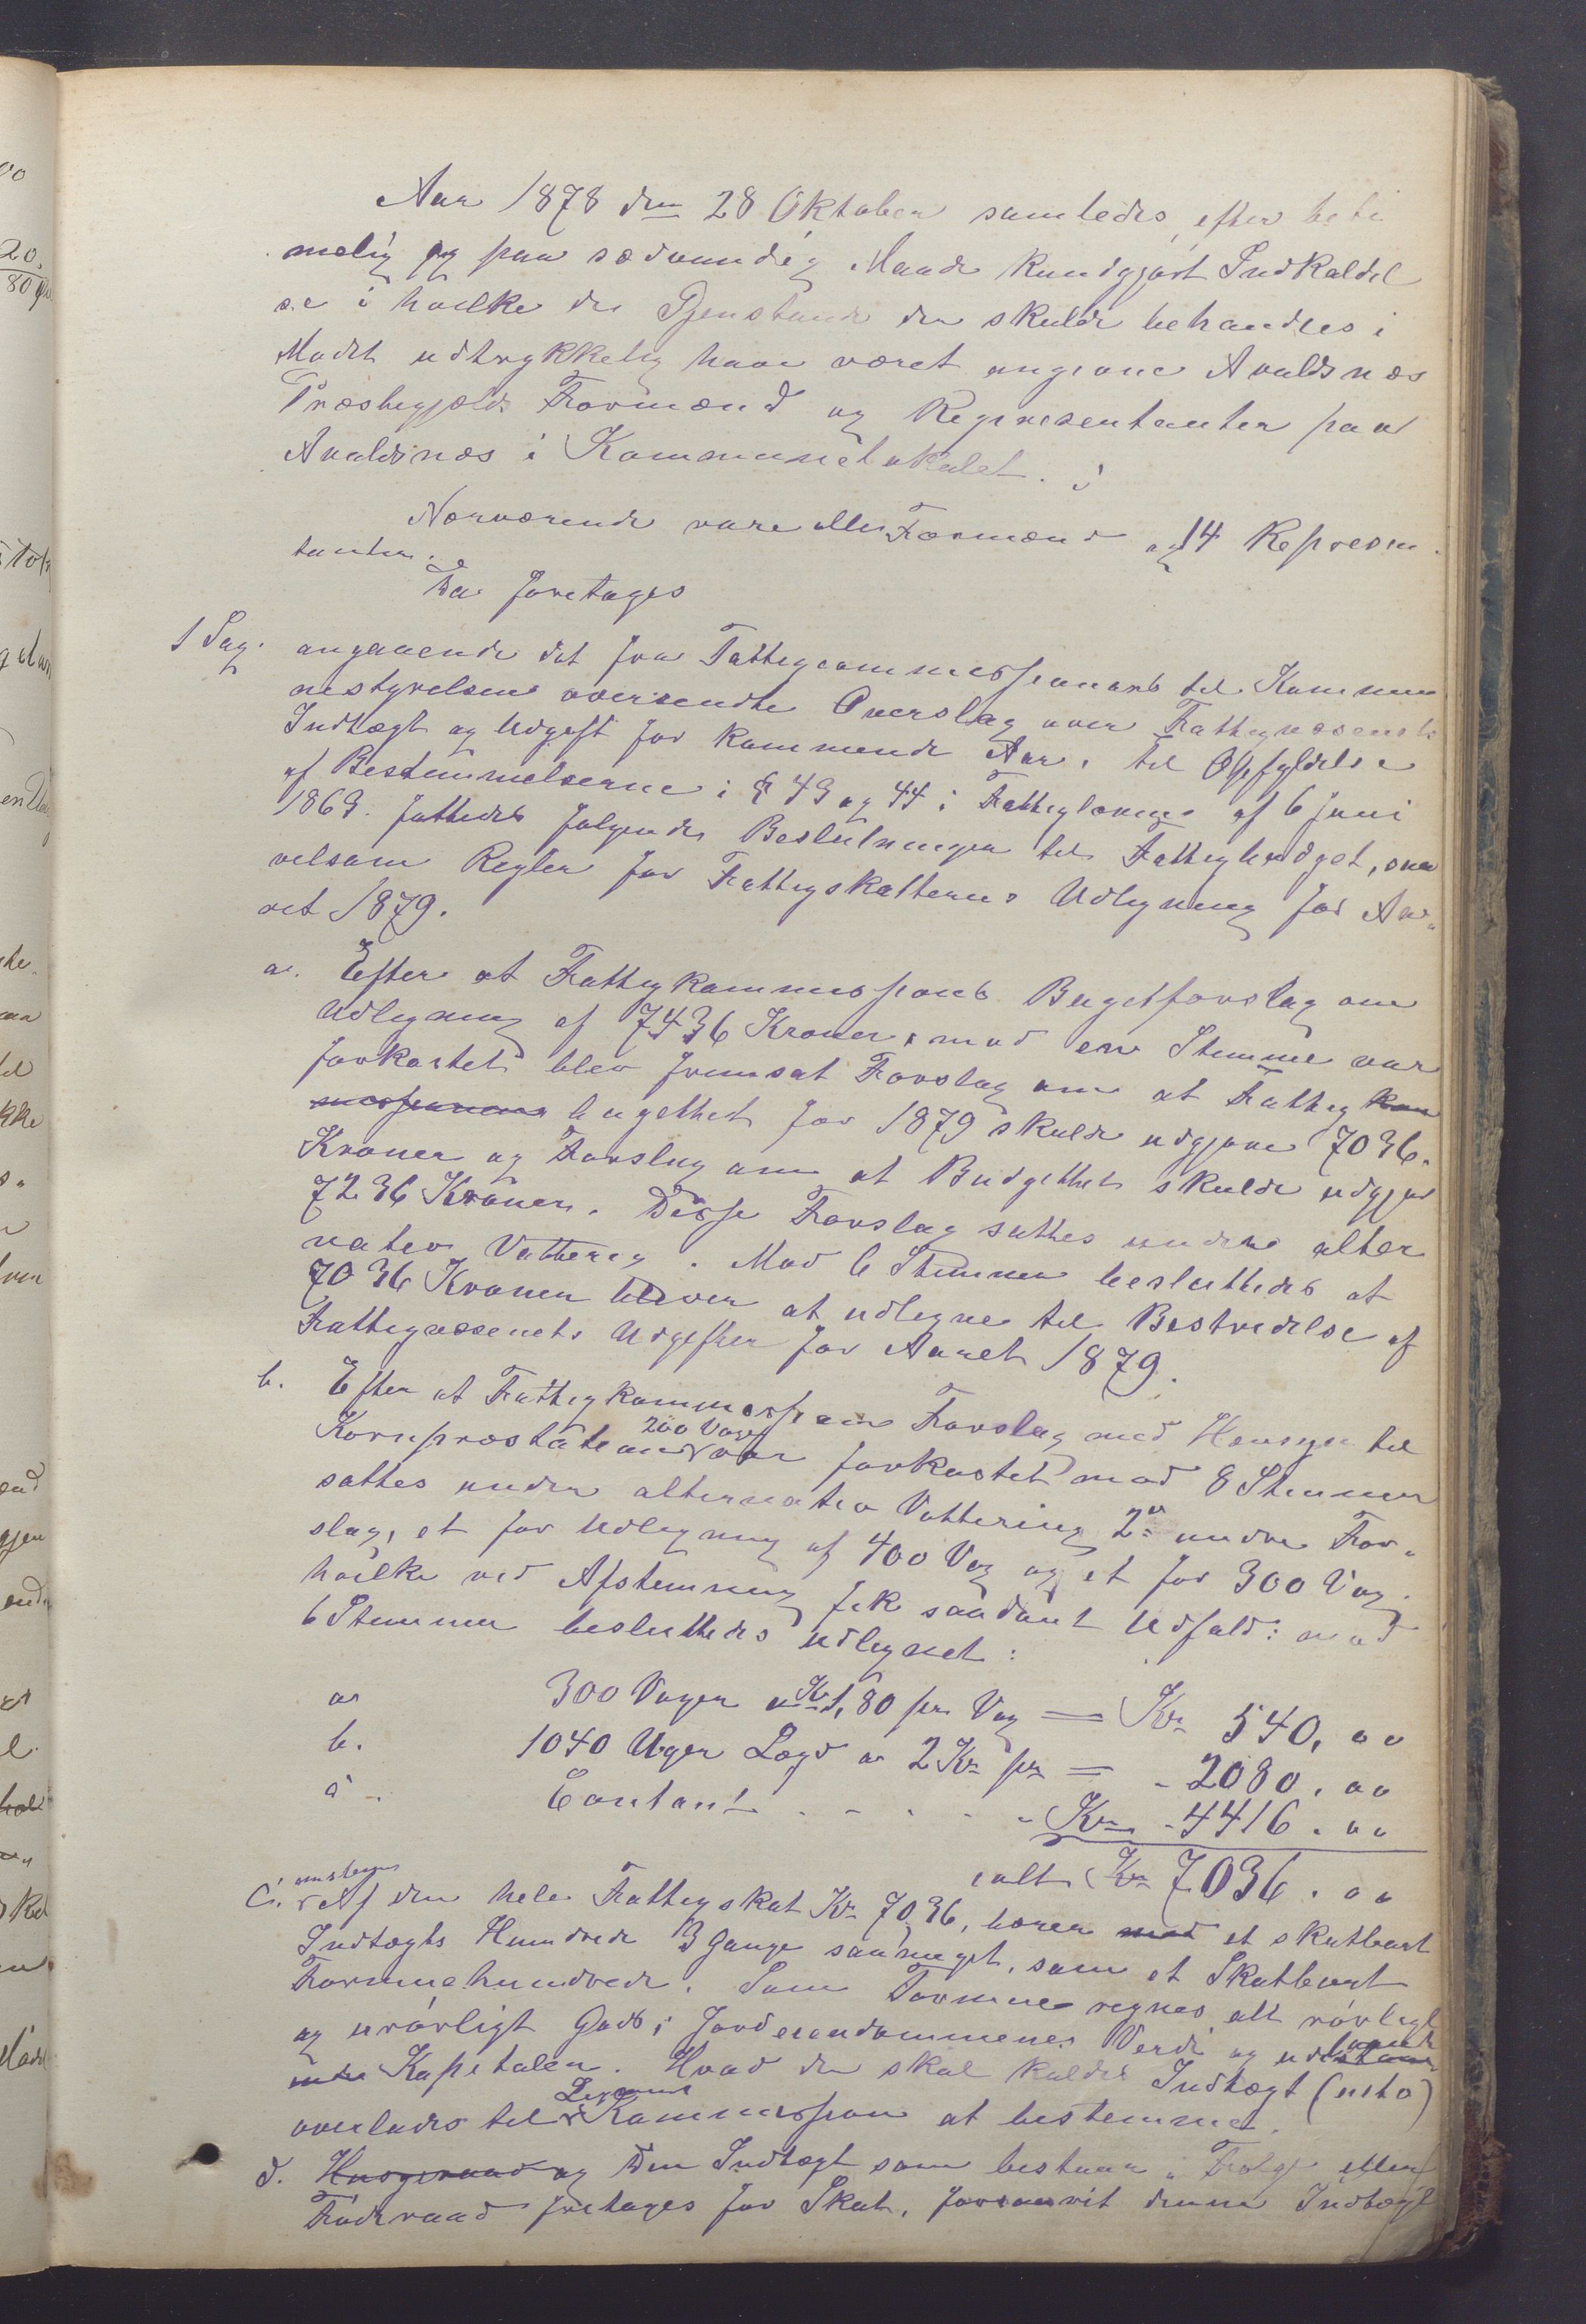 Aar 1878 den 28 Oktober samledes, efter beti
melig og paa sædvandlig Maade kundgjort Indkaldel
se i hvilke de Gjenstande der skulde behandles i
Mødet udtrykkelig have været angivne Avaldsnes
Præstegjelds Formænd og Representanter paa
Avaldsnes i Kommunelokalet.
Nærværende vare alle Formænd og 14 Represen
tanter.
Da foretages
1 Sag. angaaende det fra Fattigcommissionens til Kommu
nestyrelsen oversendte Overslag over Fattigvæsenets
Indtægt og Udgift for kommende Aar. til Opfyldelse
af Bestemmelserne i § 43 og 44 i Fattigloven af 6 Juni
1863. fattedes følgende Beslutninger til Fattigbudget, saa
velsom Regler for Fattigskattens Udligning for Aa-
ret 1879.
a. Efter at Fattigkommissions Bugetforslag om
Udligning af 7436 Kroner, mod en Stemme var
forkastet blev fremsat Forslag om at Fattig kom
missionens bugettet for 1879 skulde udgjøre 7036.
Kroner og Forslag om at Budgettet skulde udgjør
7236 Kroner. Disse Forslag sattes under alter
nativ Vottering. Mod 6 Stemmer besluttedes at
7036 Kroner bliver at udligne til Bestridelse af
Fattigvæsenets Udgifter for Aaret 1879.
b. Efter at Fattigkommission Forslag med Hensyn til
200 Vog
Kornpræstationen var forkastet mod 8 Stemmer
sattes under alternativ Vottering 2de andre For-
slag, et for Udligning af 400 Vog og et for 300 Vog.
hvilke ved Afstemning fik saadant Udfald: mod
6 Stemmer besluttedes Udlignet:
a 300 Voger a Kr 1,80 pr. Vog = Kr 540,00
b. 1040 Uger Lægd a 2 Kr pr = - 2080.00
c. Contant - - - - Kr - 4416.00
ialt Kr 7036.00
c. Af den hele Fattigskat Kr 7036, bærer med et skatbart
Indtægts Hundrede 3 Gange saa meget, som et Skatbart
Formuehundrede. Som Formue regnes alt rørligt
og urørligt Gods, i Jordeiendommenes Verdi og udlaante
Kapitaler. Hvad der skal kaldes Indtægt (netto)
Lignings
overlades til Kommission at bestemme.
d. Husgeraad og Den Indtægt som bestaar i Folge eller
Føderaad fretages for Skat, forsaavit denne Indtægt